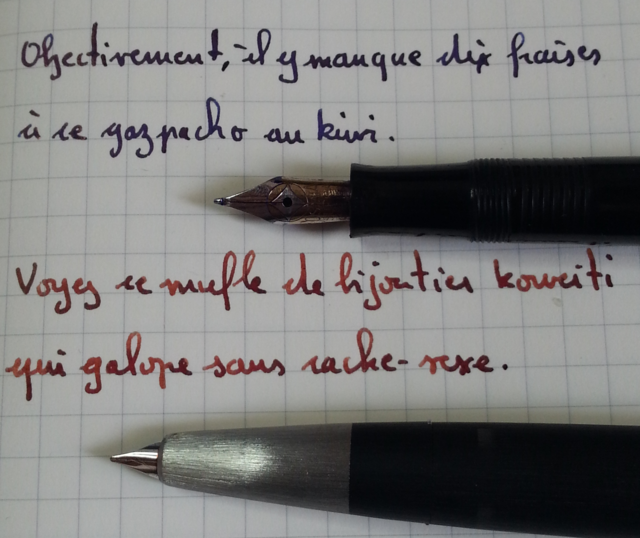 Objectivement, il y manque dix fraises
à ce gazpacho au kiwi.
Voyez ce mufle de bijoutier koweiti
qui galope sans cache-sexe.